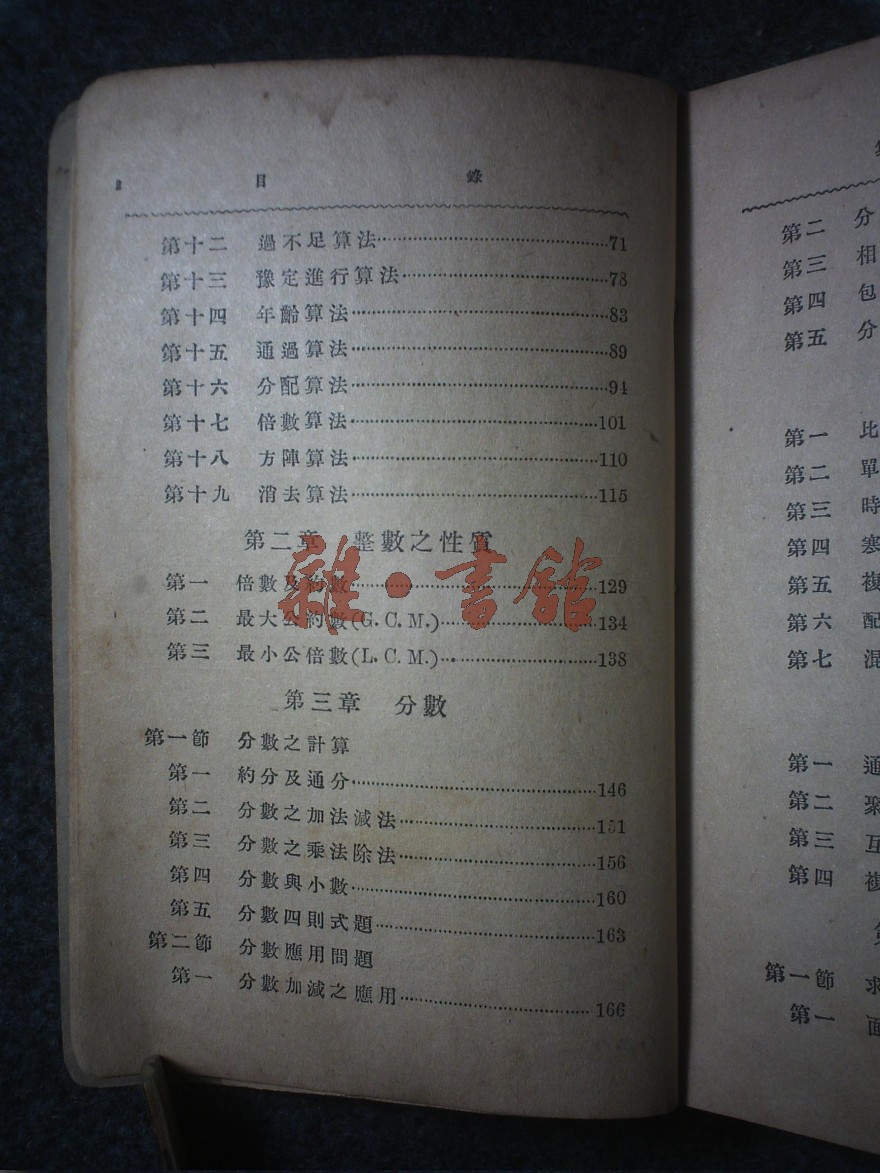 2 目 錄
第十二 過不足算法 71
第十三 豫定進行算法 78
第十四 年齡算法 83
第十五 通過算法 89
第十六 分配算法 94
第十七 倍數算法 101
第十八 方陣算法 110
第十九 消去算法 115
第二章 整數之性質
第一 倍數及約數 129
第二 最大公約數(G.C.M.) 134
第三 最小公倍數(L.C.M.) 138
雜·書館
第三章 分數
第一節 分數之計算
第一 約分及通分 146
第二 分數之加法減法 151
第三 分數之乘法除法 156
第四 分數與小數 160
第五 分數四則式題 163
第二節 分數應用問題
第一 分數加減之應用 166
第二 分
第三 相
第四 包
第五 分
第一 比
第二 單
第三 時
第四
第五 複
第六 配
第七 混
第一 通
第二 聚
第三 互
第四 複
第一節 求
第一 面